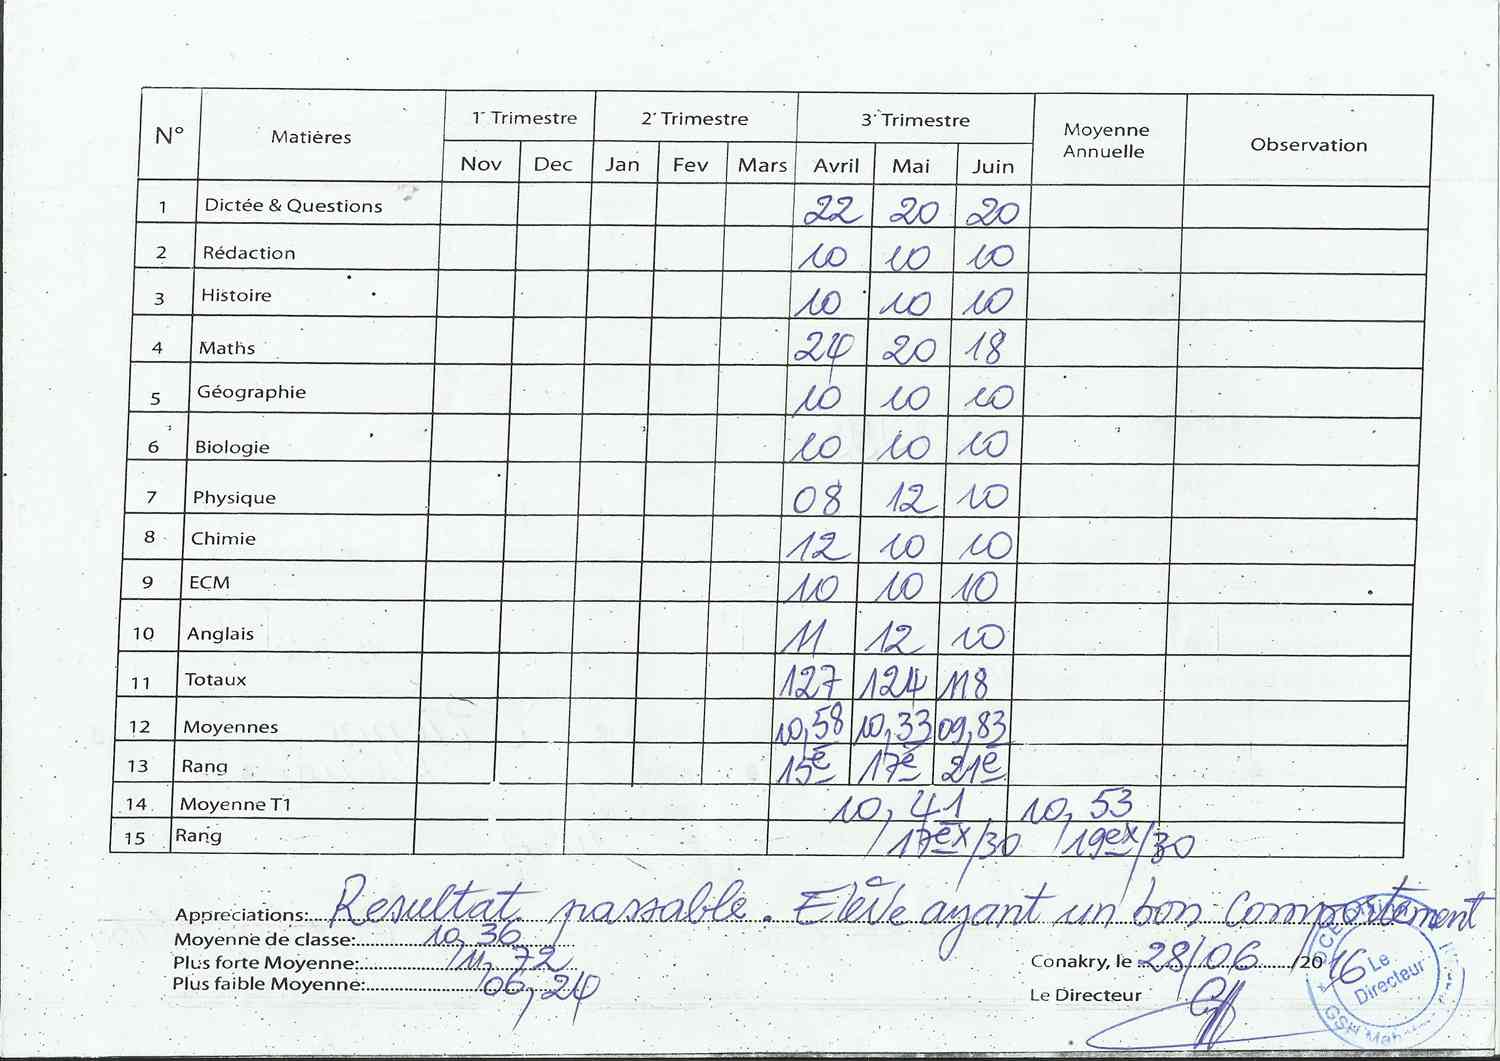 N° Matières 1' Trimestre 2' Trimestre 3' Trimestre Moyenne Annuelle Observation
Nov Dec Jan Fev Mars Avril Mai Juin
1 Dictée & Questions 22 20 20
2 Rédaction 10 10 10
3 Histoire 10 10 10
4 Maths 24 20 18
5 Géographie 10 10 10
6 Biologie 10 10 10
7 Physique 08 12 10
8 Chimie 12 10 10
9 ECM 10 10 10
10 Anglais 11 12 10
11 Totaux 127 124 118
12 Moyennes 10,58 10,33 09,83
13 Rang 15e 17e 21e
14 Moyenne T1 10,41 10,53
15 Rang 17ex/30 19ex/30
Appreciations: Resultat passable. Elève ayant un bon comportement
Moyenne de classe: 10,36
Plus forte Moyenne: 11,72
Plus faible Moyenne: 06,24
Conakry, le 28/06/2016
Le Directeur
Le Directeur